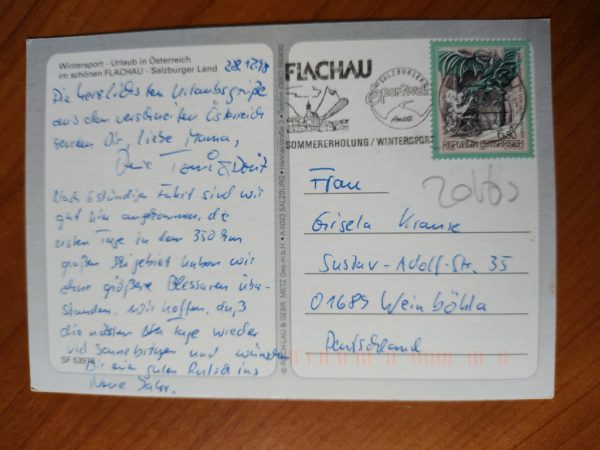 Wintersport - Urlaub in Österreich
im schönen FLACHAU - Salzburger Land
28.12.98
Die herzlichsten Urlaubsgrüße
aus dem verschneiten Österreich
senden Dir, liebe Mama,
Deine
Nach 6stündiger Fahrt sind wir
gut hier angekommen, die
ersten Tage in dem 350 km
großen Skigebiet haben wir
ohne größere Blessuren über-
standen. Wir hoffen, daß
die nächsten Tage wieder
viel Sonne bringen und wünschen
Dir einen guten Rutsch ins
Neue Jahr.
SF 5397
METZ Ges.m.b.H. • A-5023 SALZBURG •
FLACHAU
SALZBURGER
Sportwelt
Amadé
SOMMERERHOLUNG / WINTERSPORT
6.50
REPUBLIK ÖSTERREICH
Frau
Gisela Krause
Gustav-Adolf-Str. 35
01689 Weinböhla
Deutschland